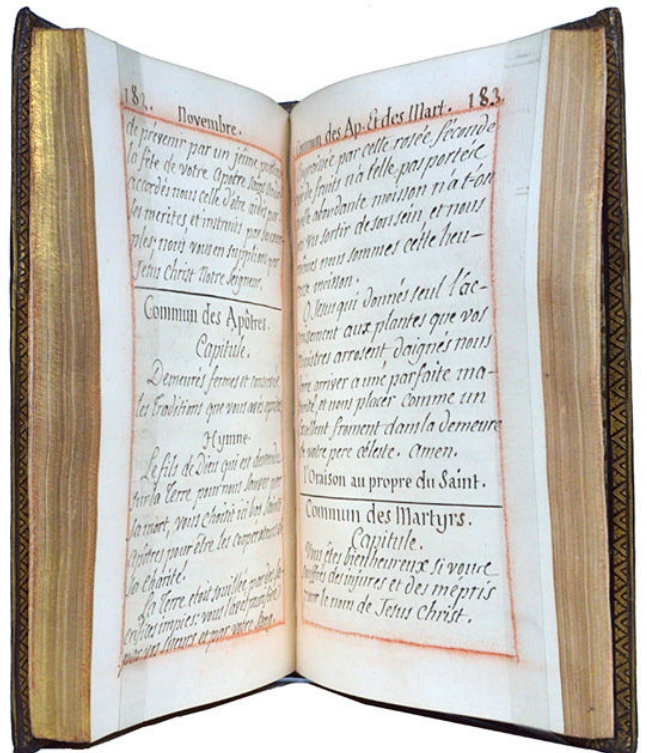 182.
Novembre.
de prévenir par un jeûne
la fête de votre Apôtre
accordés nous celle d'être aidés par
ses merites, et instruits par
ples; nous vous en supplions par
Jesus Christ Notre Seigneur.
Commun des Apôtres.
Capitule.
Demeurés fermes et conservés
les Traditions que vous avés
Hymne.
Le fils de Dieu qui est descendu
sur la Terre pour nous sauver par
sa mort, vous choisit ici bas Saints
Apôtres pour être les cooperateurs de
sa Charité.
La Terre etoit souillée par des
impies: vous l'avés
par vos sueurs et par votre Sang.
Commun des Ap. Et des Mart. 183.
par cette rosée féconde
de fruits n'a t'elle pas portés
abondante moisson n'a t-on
vu sortir de son sein, et nous
mêmes nous sommes cette heu-
reuse moisson.
O Jesus qui donnés seul l'ac-
croisement aux plantes que vos
Ministres arrosent, daignés nous
faire arriver a une parfaite ma-
turité, et nous placer comme un
excellent froment dans la demeure
de votre pere céleste. Amen.
l'Oraison au propre du Saint.
Commun des Martyrs.
Capitule.
Vous êtes bienheureux si vous
souffrés des injures et des mépris
pour le nom de Jesus Christ.